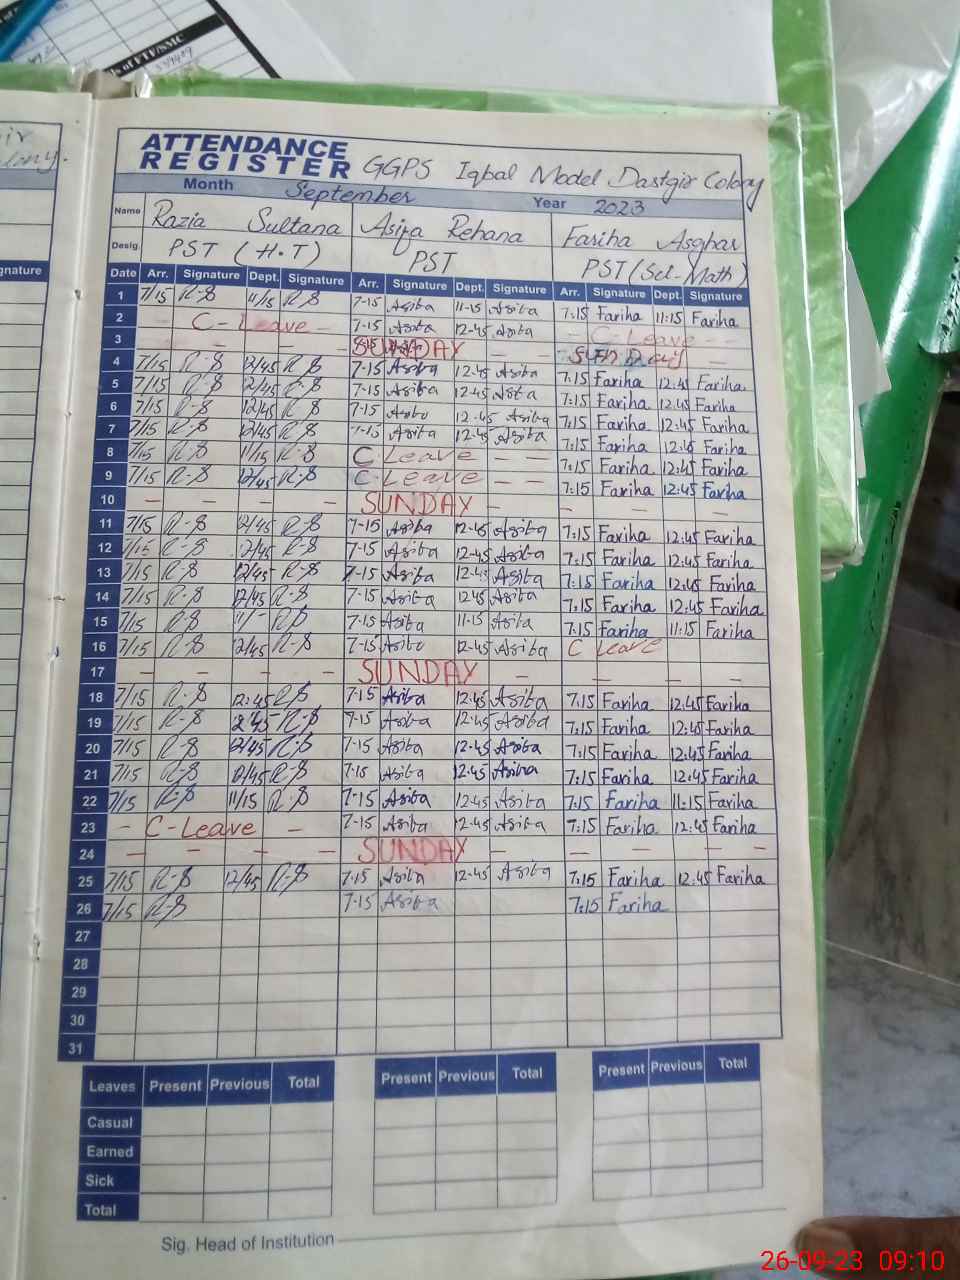 ls of PTF/SMC
ATTENDANCE
REGISTER GGPS Iqbal Model Dastgir Colony
Month September Year 2023
Name Razia Sultana Asifa Rehana Fariha Asghar
Desig. PST (H.T) PST PST (Sci-Math)
Date Arr. Signature Dept. Signature Arr. Signature Dept. Signature Arr. Signature Dept. Signature
1 7/15 R-S 11/15 R-S 7-15 Asiba 11-15 Asiba 7:15 Fariha 11:15 Fariha
2 C-Leave 7-15 Asiba 12-45 Asiba C-Leave
3 SUNDAY
4 7/15 R-S 12/45 R-S 7-15 Asiba 12-45 Asiba 7:15 Fariha 12:45 Fariha
5 7/15 R-S 12/45 R-S 7-15 Asiba 12-45 Asiba 7:15 Fariha 12:45 Fariha
6 7/15 R-S 12/45 R-S 7-15 Asiba 12-45 Asiba 7:15 Fariha 12:45 Fariha
7 7/15 R-S 12/45 R-S 7-15 Asiba 12-45 Asiba 7:15 Fariha Fariha
8 7/15 R-S 11/15 R-S C Leave – – 7:15 Fariha 12:45 Fariha
9 7/15 R-S 12/45 R-S C-Leave – – 7:15 Fariha 12:45 Fariha
10 – – – – SUNDAY – – – –
11 7/15 R-S 12/45 R-S 7-15 Asiba 12-45 Asiba 7:15 Fariha 12:45 Fariha
12 7/15 R-S 12/45 R-S 7-15 Asiba 12-45 Asiba 7:15 Fariha 12:45 Fariha
13 7/15 R-S 12/45 R-S 7-15 Asiba 12-45 Asiba 7:15 Fariha 12:45 Fariha
14 7/15 R-S 12/45 R-S 7-15 Asiba 1245 Asiba 7:15 Fariha 12:45 Fariha
15 7/15 R-S 11/- R-S 7-15 Asiba 11-15 Asiba 7:15 Fariha 11:15 Fariha
16 7/15 R-S 12/45 R-S 7-15 Asiba 12-45 Asiba C Leave
17 – – – – SUNDAY – – – –
18 7/15 R-S 12:45 R-S 7-15 Asiba 12-45 Asiba 7:15 Fariha 12:45 Fariha
19 7/15 R-S 245 R-S 7-15 Asiba 12-45 Asiba 7:15 Fariha 12:45 Fariha
20 7/15 R-S 12/45 R-S 7-15 Asiba 12-45 Asiba 7:15 Fariha 12:45 Fariha
21 7/15 R-S 12/45 R-S 7-15 Asiba 12-45 Asiba 7:15 Fariha 12:45 Fariha
22 7/15 R-S 11/15 R-S 7-15 Asiba 12-45 Asiba 7:15 Fariha 11:15 Fariha
23 – C-Leave – 7-15 Asiba 12-45 Asiba 7:15 Fariha 12:45 Fariha
24 – – – – SUNDAY – – – – –
25 7/15 R-S 12/45 R-S 7-15 Asiba 12-45 Asiba 7:15 Fariha 12:45 Fariha
26 7/15 R-S 7-15 Asiba 7:15 Fariha
27
28
29
30
31
Leaves Present Previous Total Present Previous Total Present Previous Total
Casual
Earned
Sick
Total
Sig. Head of Institution
26-09-23 09:10